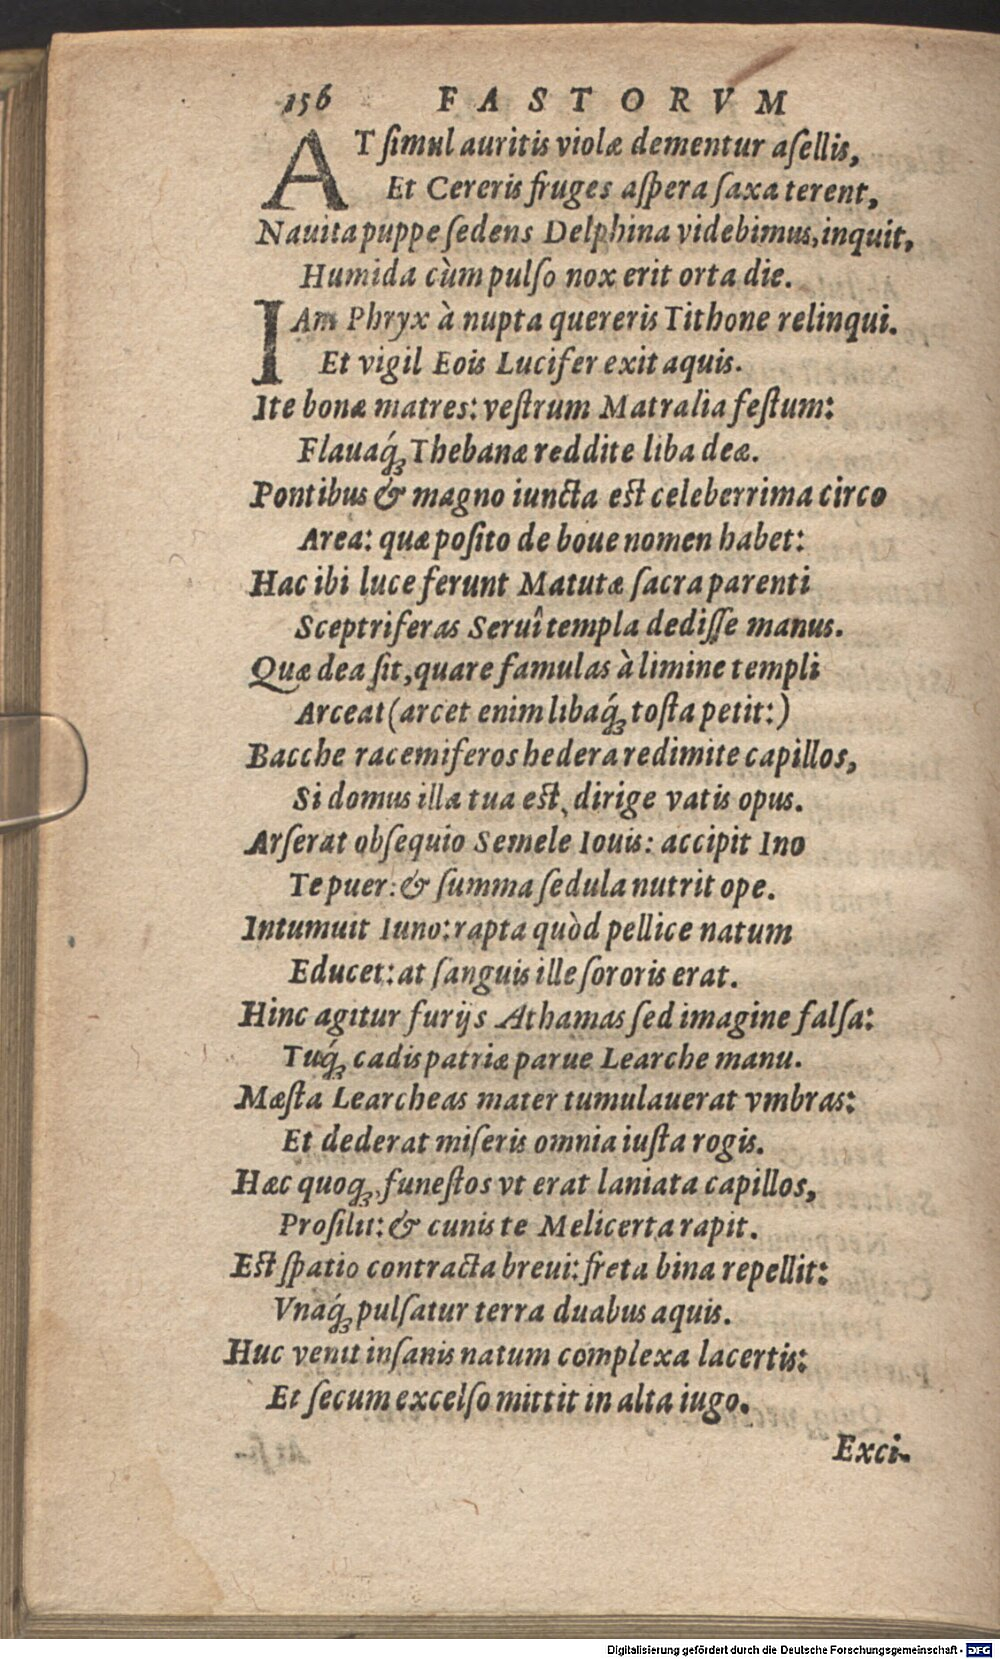 156 FASTORVM
AT ſimul auritis violæ dementur aſellis,
Et Cereris fruges aſpera ſaxa terent,
Nauita puppe ſedens Delphina videbimus, inquit,
Humida cùm pulſo nox erit orta die.
IAm Phryx à nupta quereris Tithone relinqui.
Et vigil Eois Lucifer exit aquis.
Ite bonæ matres: veſtrum Matralia feſtum:
Flauaq́ꝫ Thebanæ reddite liba deæ.
Pontibus & magno iuncta est celeberrima circo
Area: quæ poſito de boue nomen habet:
Hac ibi luce ferunt Matutæ ſacra parenti
Sceptriferas Seruî templa dediſſe manus.
Quæ dea ſit, quare famulas à limine templi
Arceat (arcet enim libaq́ꝫ toſta petit:)
Bacche racemiferos hedera redimite capillos,
Si domus illa tua est, dirige vatis opus.
Arſerat obſequio Semele Iouis: accipit Ino
Te puer: & ſumma ſedula nutrit ope.
Intumuit Iuno: rapta quòd pellice natum
Educet: at ſanguis ille ſororis erat.
Hinc agitur furijs Athamas ſed imagine falſa:
Tuq́ꝫ cadis patriæ parue Learche manu.
Mæſta Learcheas mater tumulauerat vmbras:
Et dederat miſeris omnia iuſta rogis.
Hæc quoqꝫ funeſtos vt erat laniata capillos,
Proſilit: & cunis te Melicerta rapit.
Est ſpatio contracta breui: freta bina repellit:
Vnaq́ꝫ pulſatur terra duabus aquis.
Huc venit inſanis natum complexa lacertis:
Et ſecum excelſo mittit in alta iugo.
Exci-
Digitalisierung gefördert durch die Deutsche Forschungsgemeinschaft - DFG